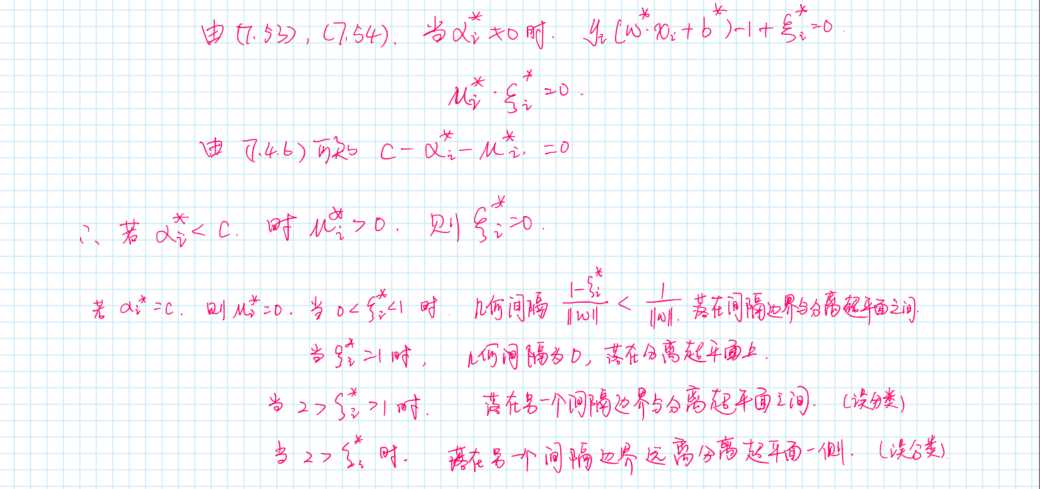 由(7.53), (7.54). 当αᵢ*≠0时. yᵢ(w*·xᵢ+b*)-1+ξᵢ*=0.
μᵢ*·ξᵢ*=0.
由(7.46)可知 C-αᵢ*-μᵢ*=0
∴ 若αᵢ*<C. 时μᵢ*>0. 则ξᵢ*=0.
若αᵢ*=C. 则μᵢ*=0. 当0<ξᵢ*<1时 几何间隔 (1-ξᵢ*)/||w|| < 1/||w||. 落在间隔边界与分离超平面之间.
当ξᵢ*=1时, 几何间隔为0, 落在分离超平面上.
当2>ξᵢ*>1时. 落在另一个间隔边界与分离超平面之间. (误分类)
当2>ξᵢ*时. 落在另一个间隔边界远离分离超平面一侧. (误分类)